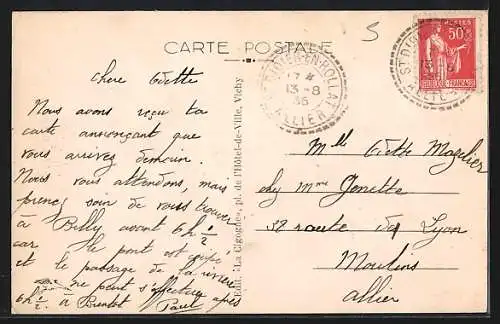 5
CARTE POSTALE
ST DIDIER-EN-ROLLAT
17 H
13-8
35
ALLIER
POSTES
50c
RÉPUBLIQUE FRANÇAISE
Chere Odette
Nous avons reçu ta
carte annonçant que
vous arrivez demain.
Nous vous attendons, mais
prenez soin de vous trouver
à Billy avant 6h 1/2
car le pont est coupé
et le passage de la rivière
ne peut s'effectuer après
6h 1/2. à Bientot Paul
Edit. «La Cigogne», pl. de l'Hôtel-de-Ville, Vichy
Mlle Odette
chez Mme Genette
32 route de Lyon
Moulins
Allier